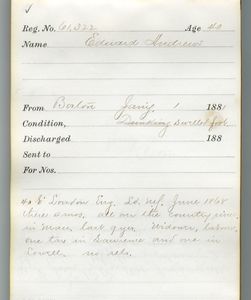 Reg. No. 61,322 Age 40
Name Edward Andrews
From Boston Jany 1 1881
Condition, Drinking Swelled foot
Discharged 188
Sent to
For Nos.
40 E London Eng. Ld. NY. June 1868
there 2 mos. all over the country since
in Mass. last yrs. Widower, labor
one tax in Lawrence and one in
Lowell. no rels.